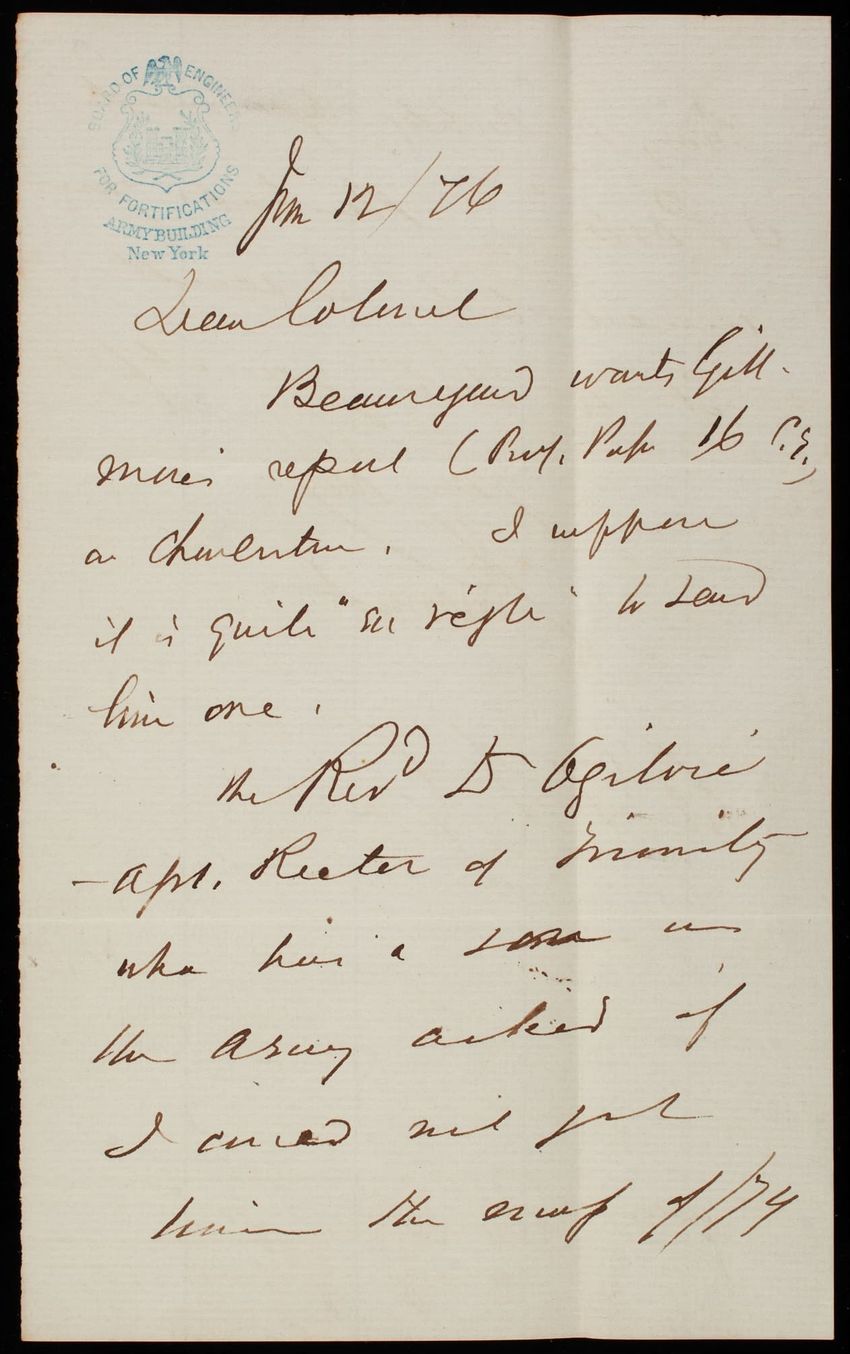 BOARD OF ENGINEERS
FOR FORTIFICATIONS
ARMY BUILDING
New York
Jan 12/76
Dear Colonel
Beauregard wants Gill-
more's report (Prof. Pap 16 C.E.)
on Charleston. I suppose
it is quite "en règle" to send
him one.
The Revd Dr Ogilvie
- Asst. Rector of Trinity
who has a son in
the Army asked if
I could not get
him the map of /74